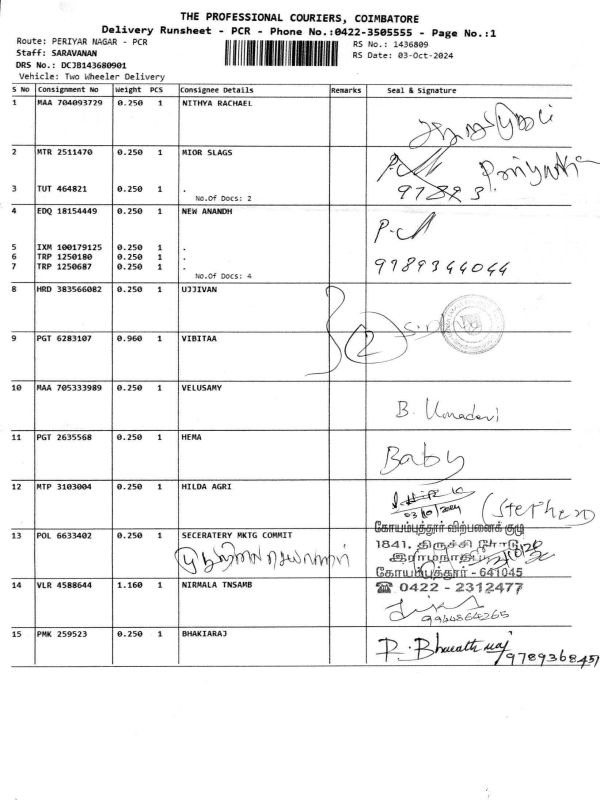 THE PROFESSIONAL COURIERS, COIMBATORE
Delivery Runsheet - PCR - Phone No.:0422-3505555 - Page No.:1
Route: PERIYAR NAGAR - PCR
RS No.: 1436809
Staff: SARAVANAN
RS Date: 03-Oct-2024
DRS No.: DCJB143680901
Vehicle: Two Wheeler Delivery
S No Consignment No Weight PCS Consignee Details Remarks Seal & Signature
1 MAA 704093729 0.250 1 NITHYA RACHAEL
2 MTR 2511470 0.250 1 MIOR SLAGS
Priyanka
3 TUT 464821 0.250 1 .
No.Of Docs: 2
4 EDQ 18154449 0.250 1 NEW ANANDH
5 IXM 100179125 0.250 1 .
6 TRP 1250180 0.250 1 .
7 TRP 1250687 0.250 1 .
9789344044
No.Of Docs: 4
8 HRD 383566082 0.250 1 UJJIVAN
9 PGT 6283107 0.960 1 VIBITAA
2
10 MAA 705333989 0.250 1 VELUSAMY
B. Umadevi
11 PGT 2635568 0.250 1 HEMA
Baby
12 MTP 3103004 0.250 1 HILDA AGRI
03/10/2024
(Stephen
13 POL 6633402 0.250 1 SECERATERY MKTG COMMIT
கோயம்புத்தூர் விற்பனைக் குழு
1841, திருச்சி ரோடு
இராமநாதபுரம்
கோயம்புத்தூர் - 641045
☎ 0422 - 2312477
14 VLR 4588644 1.160 1 NIRMALA TNSAMB
9944864265
15 PMK 259523 0.250 1 BHAKIARAJ
9789368451